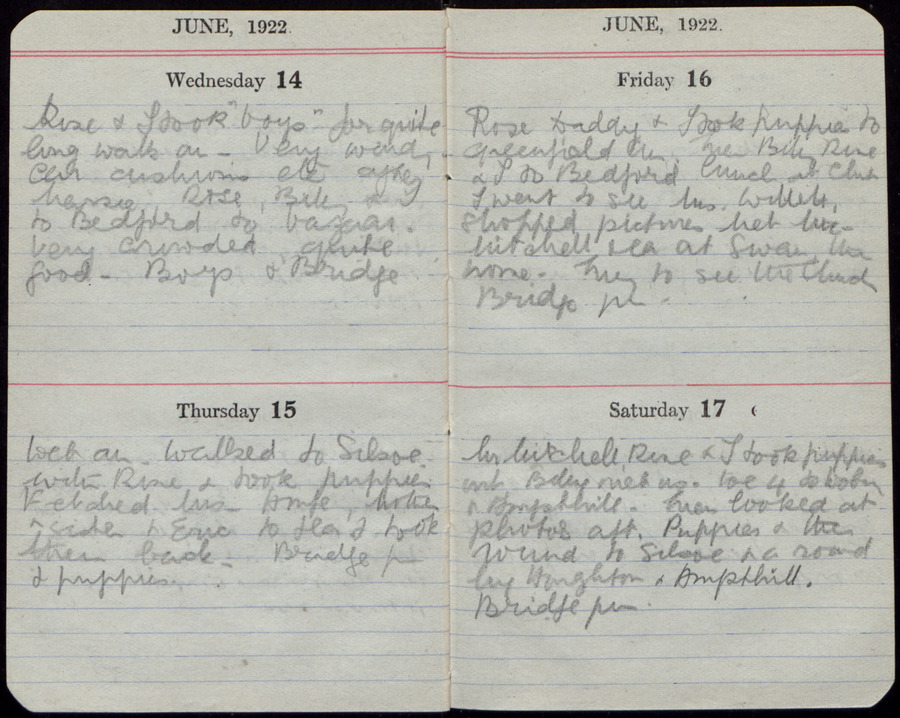 JUNE, 1922.
Wednesday 14
Rose & I took "boys" for quite
long walk am - Very windy,
car cushions etc after
Rose, Billy & I
to Bedford to bazaar.
Very crowded, quite
good - Boys & Bridge
Thursday 15
Wet am. Walked to Silsoe
with Rose & took puppies
Fetched Mrs
& Eric to tea & took
them back - Bridge pm
& puppies.
JUNE, 1922.
Friday 16
Rose Daddy & I took puppies to
Greenfield am. Billy Rose
& I to Bedford lunch at Club
I went to see Mrs. Willett,
shopped pictures met Mrs
Mitchell tea at Swan then
home. to see the
Bridge pm.
Saturday 17
Mr Mitchell, Rose & I took puppies
out Billy met us.
& Ampthill. looked at
photos aft. Puppies & then
round to Silsoe & a round
by Houghton & Ampthill.
Bridge pm.